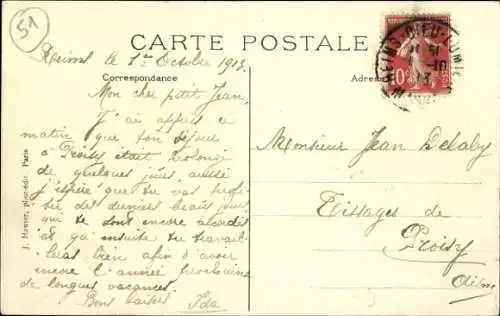 51
Reims le 1er Octobre 1913
CARTE POSTALE
Correspondance
Mon cher petit Jean,
J'ai appris ce
matin que ton séjour
à Proisy était prolongé
de quelques jours, aussi
j'espère que tu vas profi-
ter des derniers beaux jours
qui te sont encore accordés
et qu'ensuite tu travail-
leras bien afin d'avoir
encore l'année prochaine
de longues vacances.
Bons baisers Ida
J. Meunier, phot-édit. Paris
10
Monsieur Jean Delaby
Tissages de
Proisy
Aisne